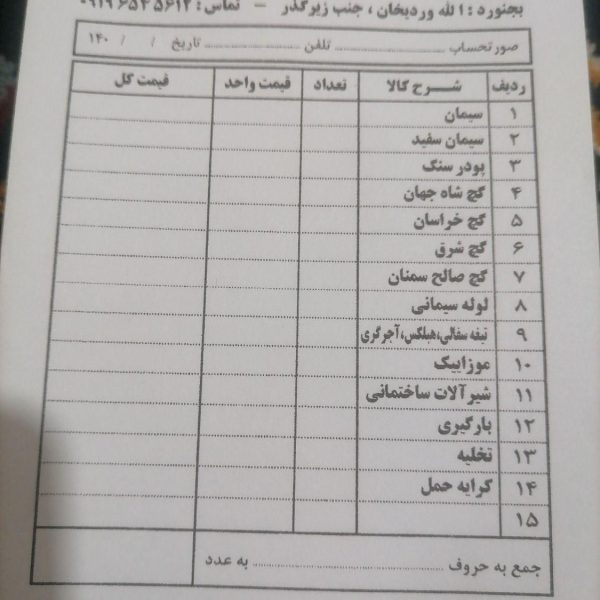 بجنورد: الله وردیخان، جنب زیرگذر - تماس: ۰۹۱۹۶۵۴۵۶۱۲
صورتحساب ............ تلفن ............ تاریخ / / ۱۴۰
ردیف شــرح کالا تعداد قیمت واحد قیمت کل
۱ سیمان
۲ سیمان سفید
۳ پودر سنگ
۴ گچ شاه جهان
۵ گچ خراسان
۶ گچ شرق
۷ گچ صالح سمنان
۸ لوله سیمانی
۹ تیغه سفالی،هبلکس،آجرگری
۱۰ موزاییک
۱۱ شیرآلات ساختمانی
۱۲ بارگیری
۱۳ تخلیه
۱۴ کرایه حمل
۱۵
جمع به حروف ............ به عدد